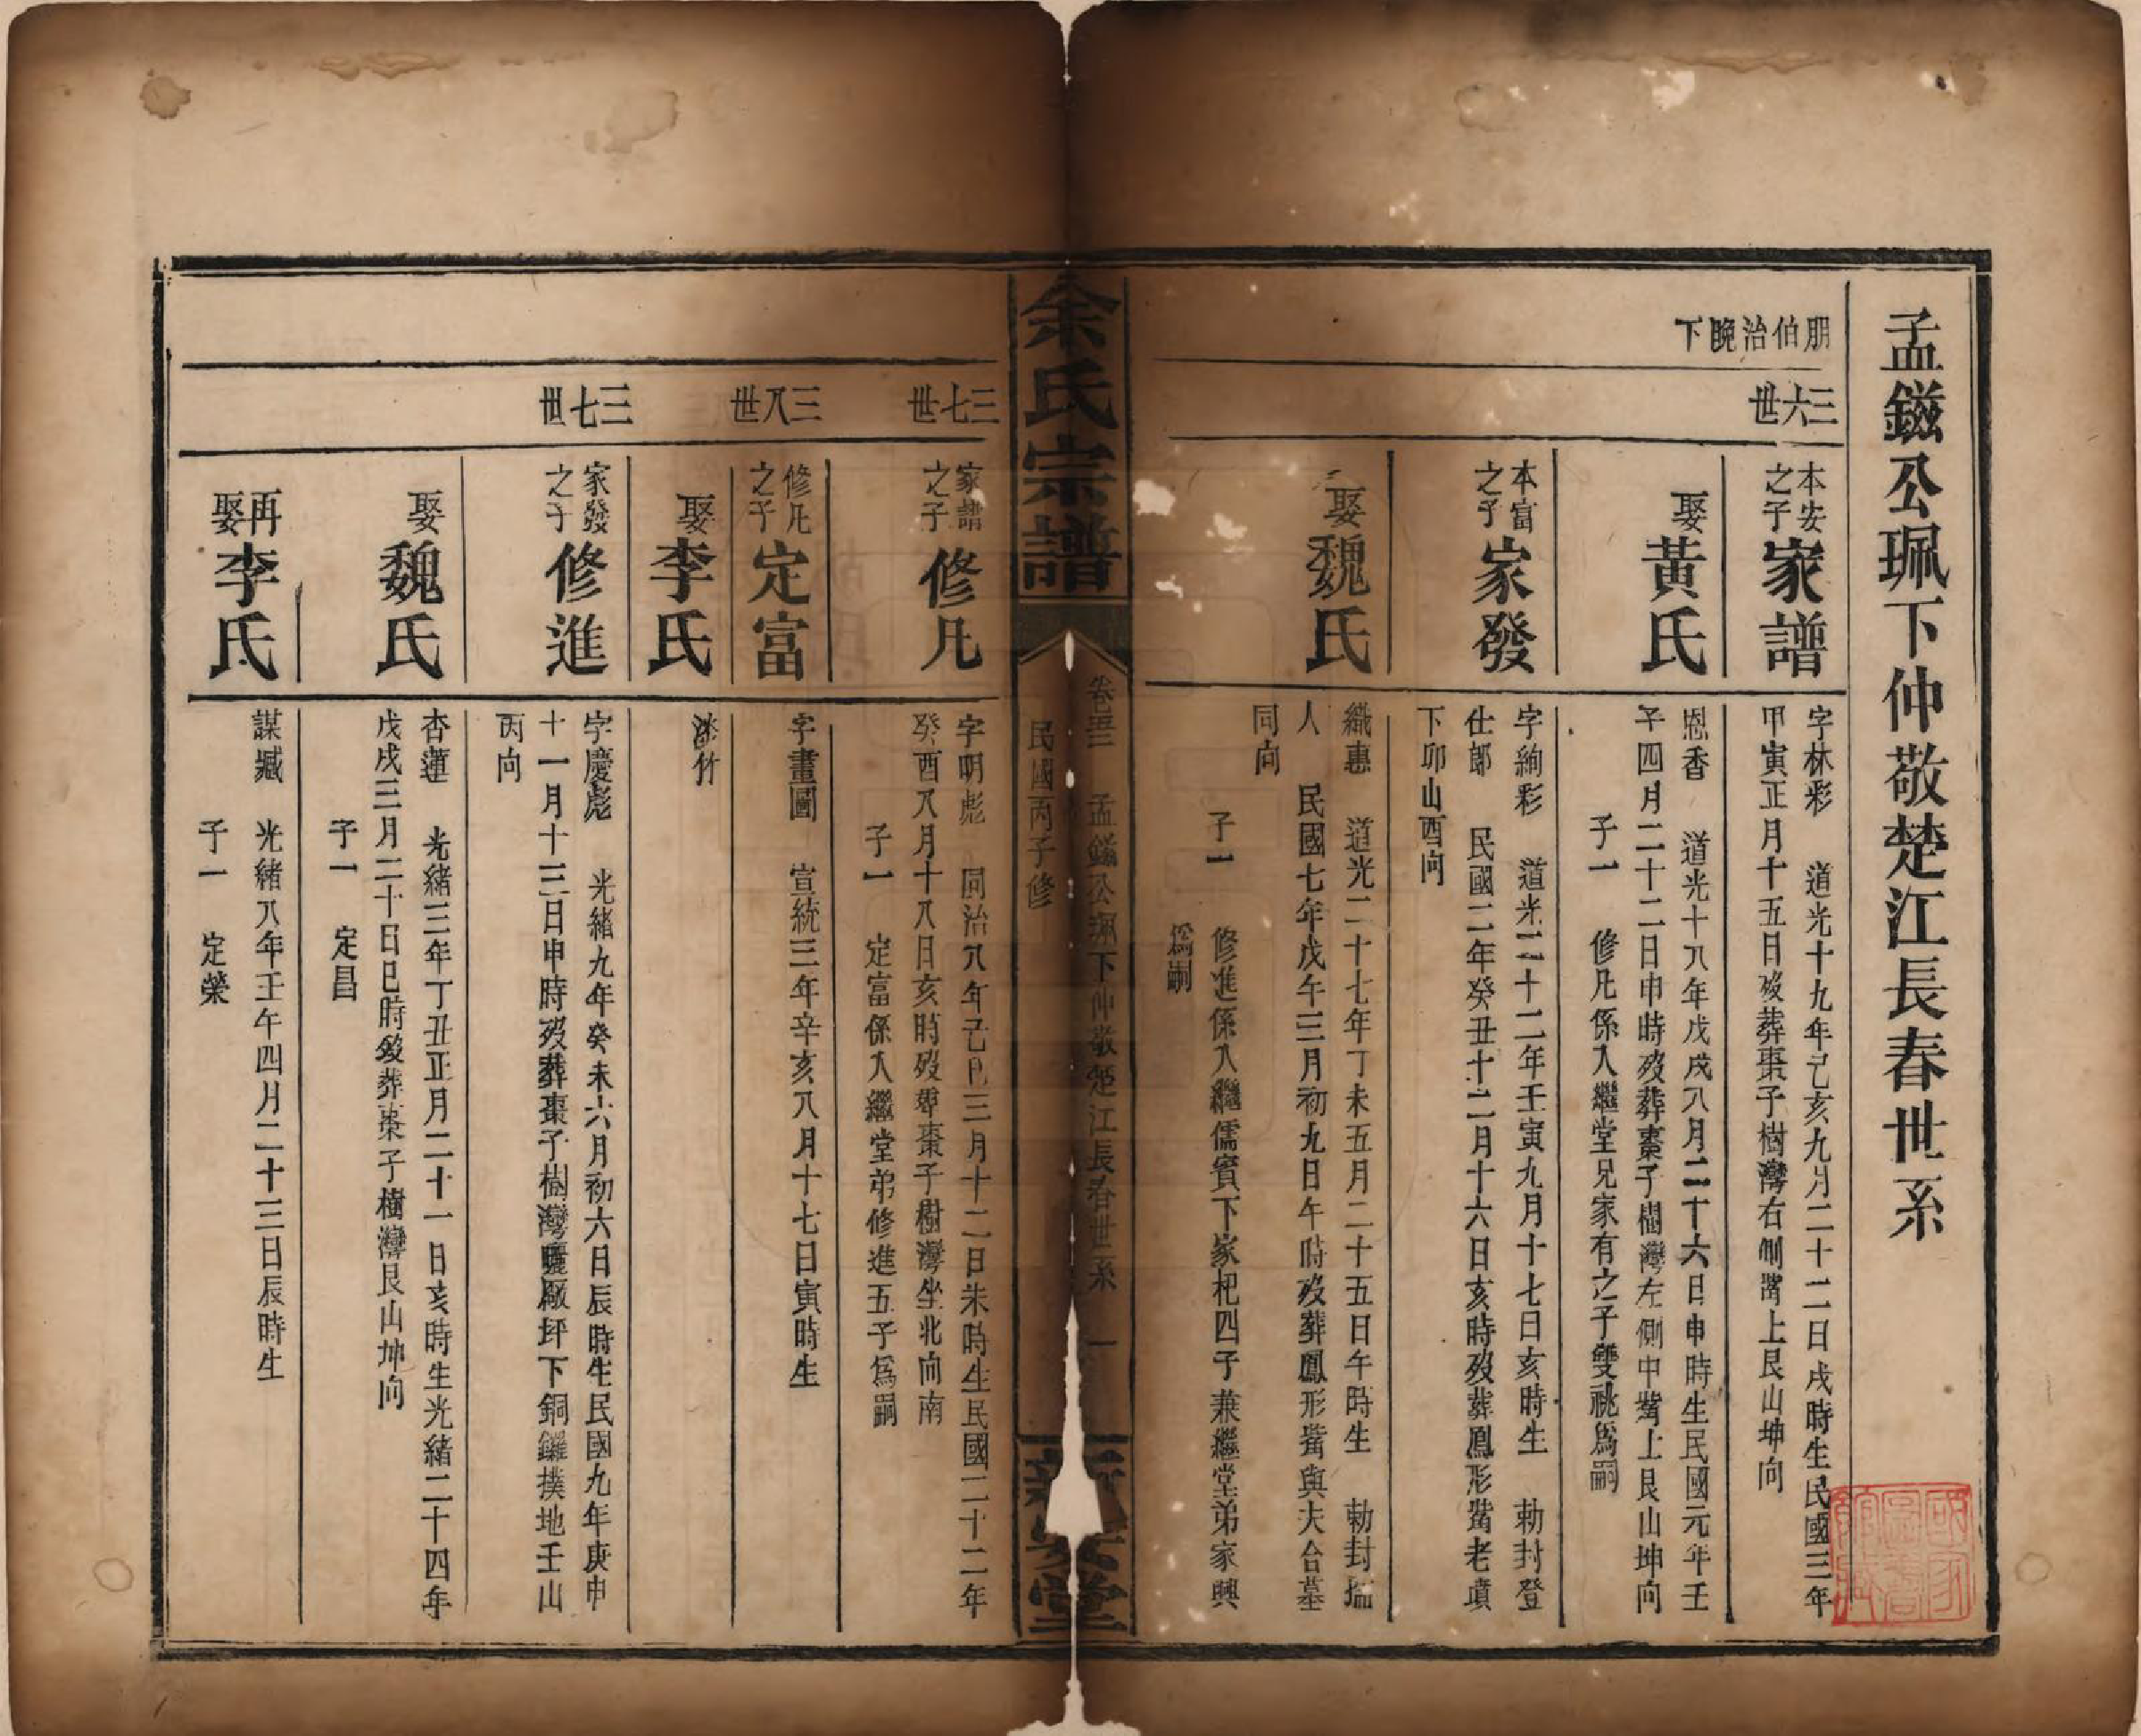 孟鎡公珮下仲敬楚江長春世系
朋伯治晚下
三六世
本安之子
家譜
字林彩 道光十九年己亥九月二十二日戌時生民國三年
甲寅正月十五日歿葬棗子樹灣右側嘴上艮山坤向
娶
黃氏
恩香 道光十八年戊戌八月二十六日申時生民國元年壬
子四月二十二日申時歿葬棗子樹灣左側中嘴上艮山坤向
子一 修凡係入繼堂兄家有之子雙祧爲嗣
本富之子
家發
字絢彩 道光二十二年壬寅九月十七日亥時生 勅封登
仕郎 民國二年癸丑十二月十六日亥時歿葬鳳形嘴老墳
下卯山酉向
娶
魏氏
織惠 道光二十七年丁未五月二十五日午時生 勅封孺
人 民國七年戊午三月初九日午時歿葬鳳形嘴與夫合墓
同向
子一 修進係入繼儒賓下家杷四子兼繼堂弟家興
爲嗣
余氏宗譜
孟鎡公珮下仲敬楚江長春世系 一
民國丙子修
堂
三七世
家譜之子
修凡
字明彪 同治八年己巳三月十二日未時生民國二十二年
癸酉八月十八日亥時歿葬棗子樹灣坐北向南
子一 定富係入繼堂弟修進五子爲嗣
三八世
修凡之子
定富
字畫圖 宣統三年辛亥八月十七日寅時生
娶
李氏
漆竹
三七世
家發之子
修進
字慶彪 光緒九年癸未六月初六日辰時生民國九年庚申
十一月十三日申時歿葬棗子樹灣曬廠坪下銅鑼撲地壬山
丙向
娶
魏氏
杏蓮 光緒三年丁丑正月二十一日亥時生光緒二十四年
戊戌三月二十日巳時歿葬棗子樹灣艮山坤向
子一 定昌
再娶
李氏
謀臧 光緒八年壬午四月二十三日辰時生
子一 定榮